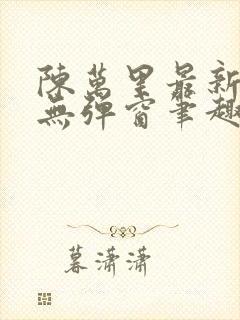 陳萬里最新
無彈窗筆趣
暮瀟瀟